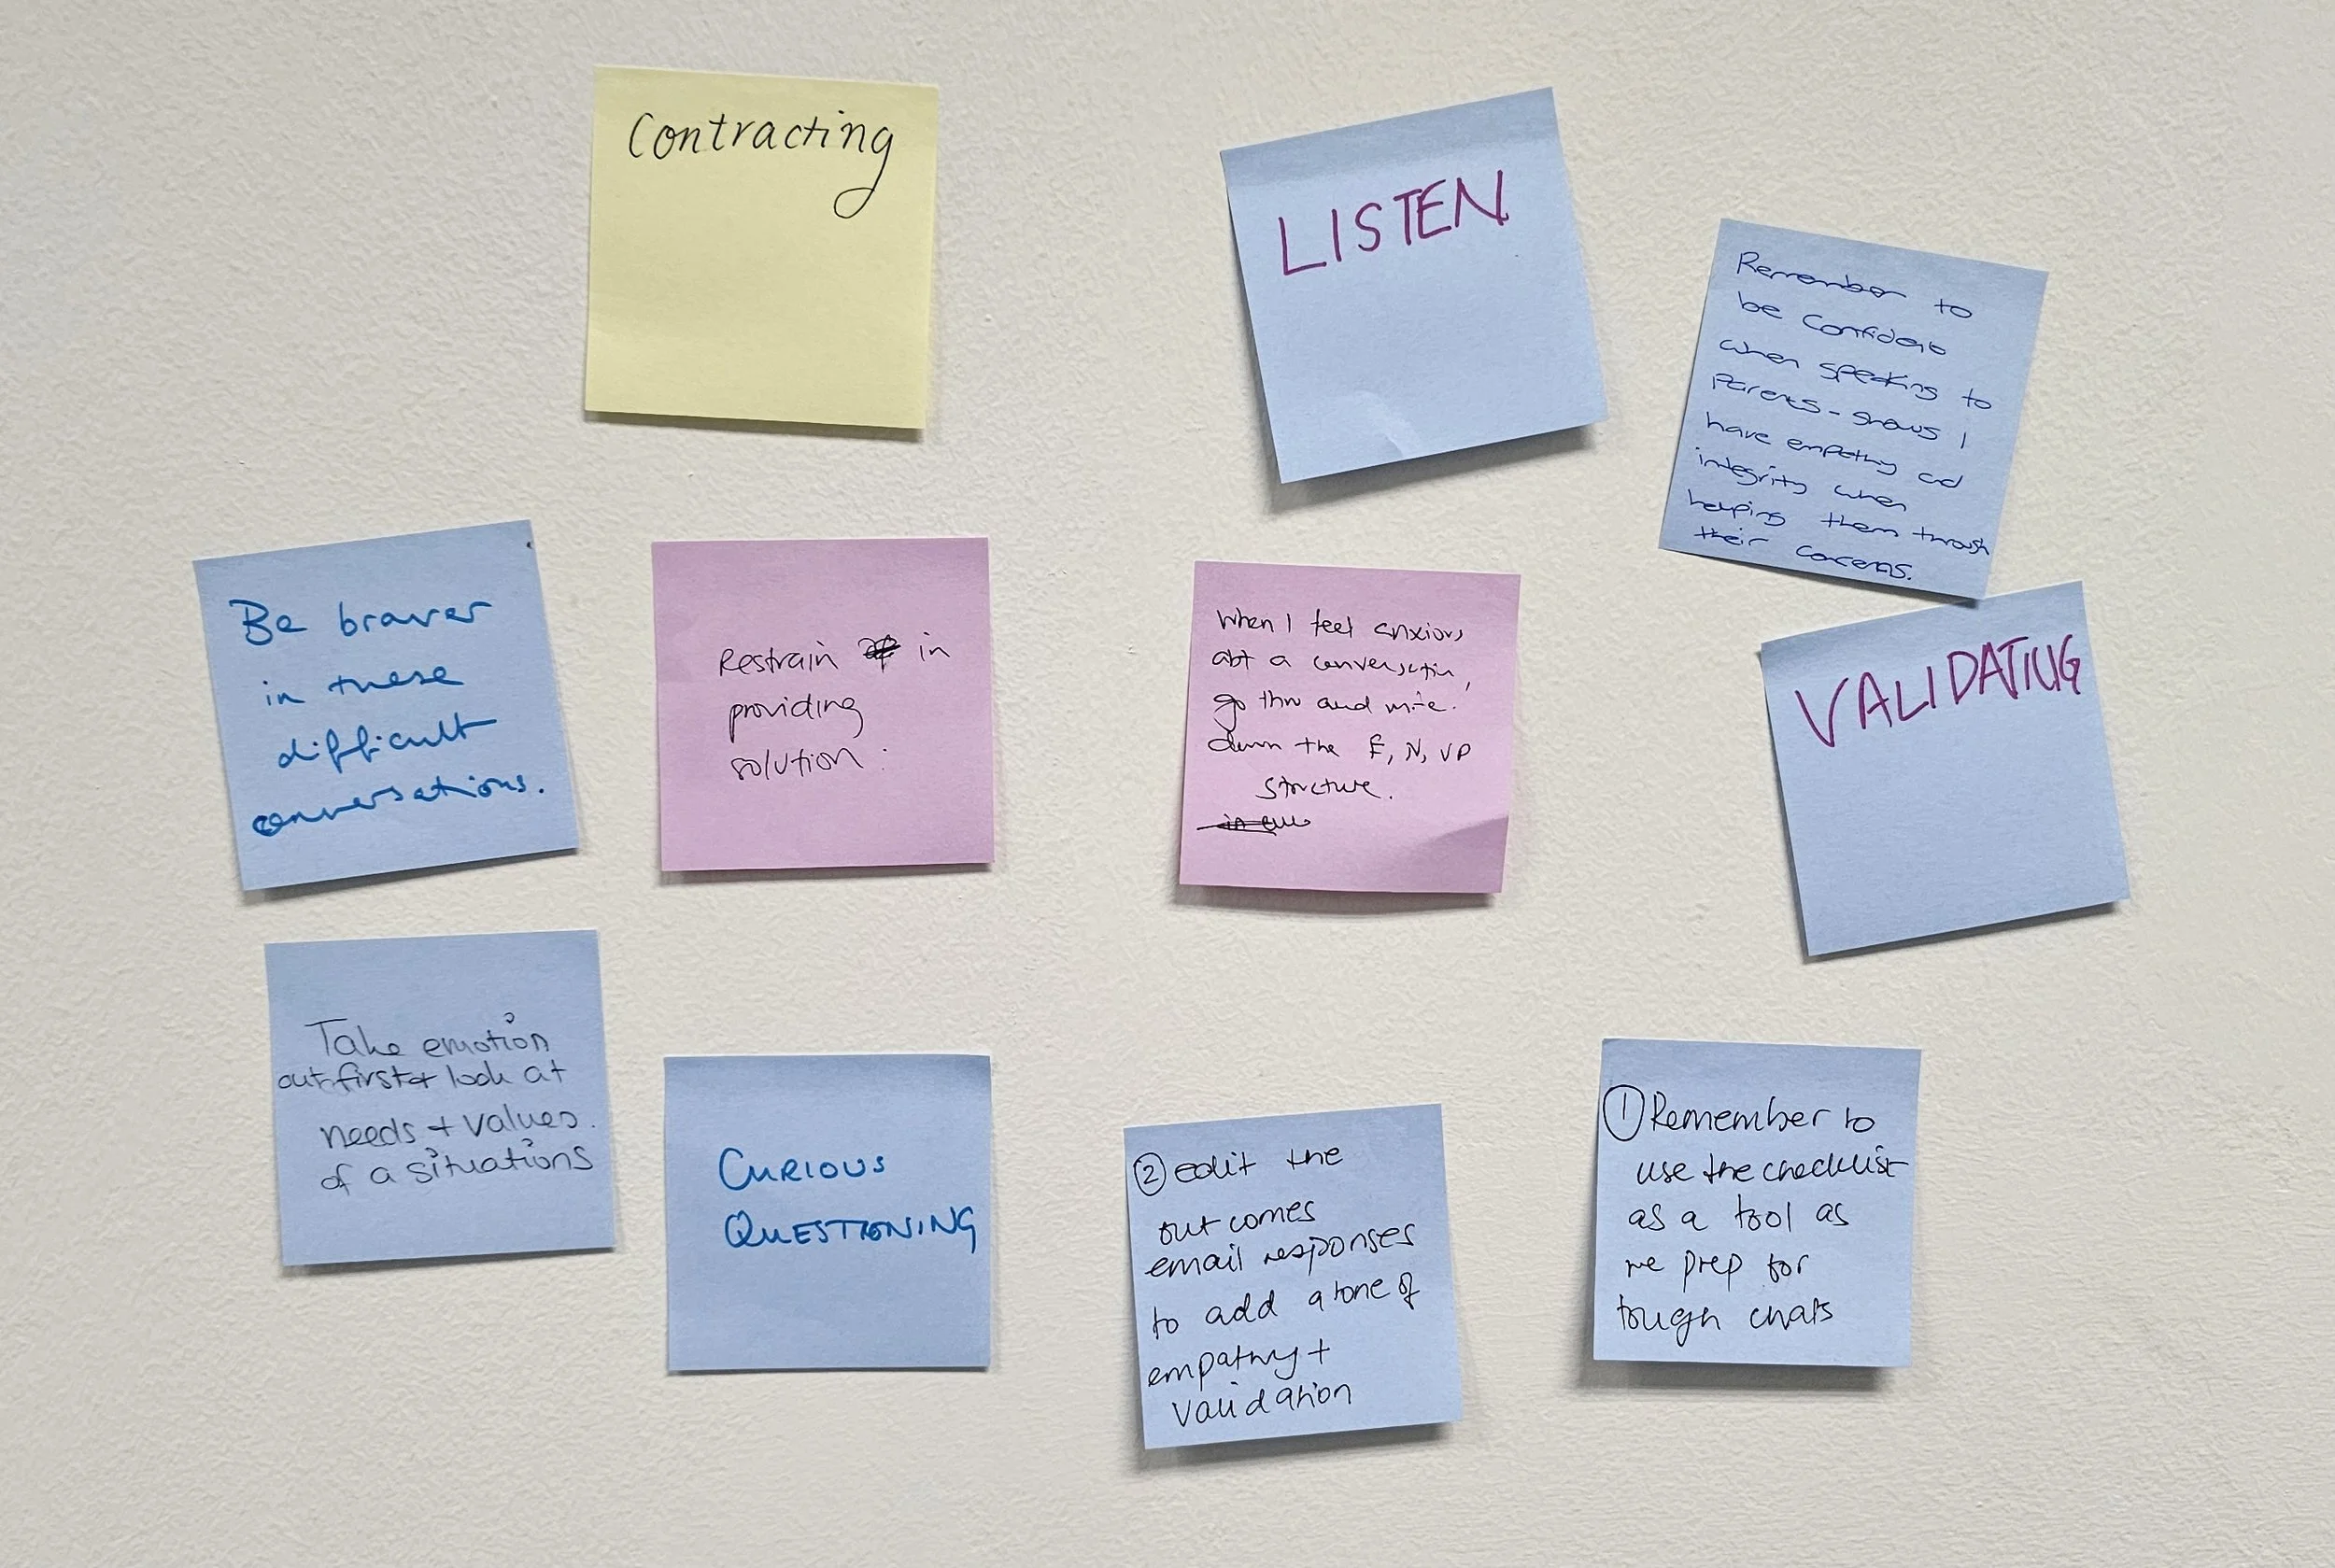 Contracting
LISTEN
Remember to
be confident
when speaking to
parents - shows I
have empathy and
integrity when
helping them through
their concerns.
Be braver
in these
difficult
conversations.
Restrain in
providing
solution.
When I feel anxious
abt a conversation,
go thru and write
down the F, N, VP
structure.
VALIDATING
Take emotion
out first + look at
needs + values
of a situations
CURIOUS
QUESTIONING
② edit the
outcomes
email responses
to add a tone of
empathy +
validation
① Remember to
use the checklist
as a tool as
we prep for
tough chats